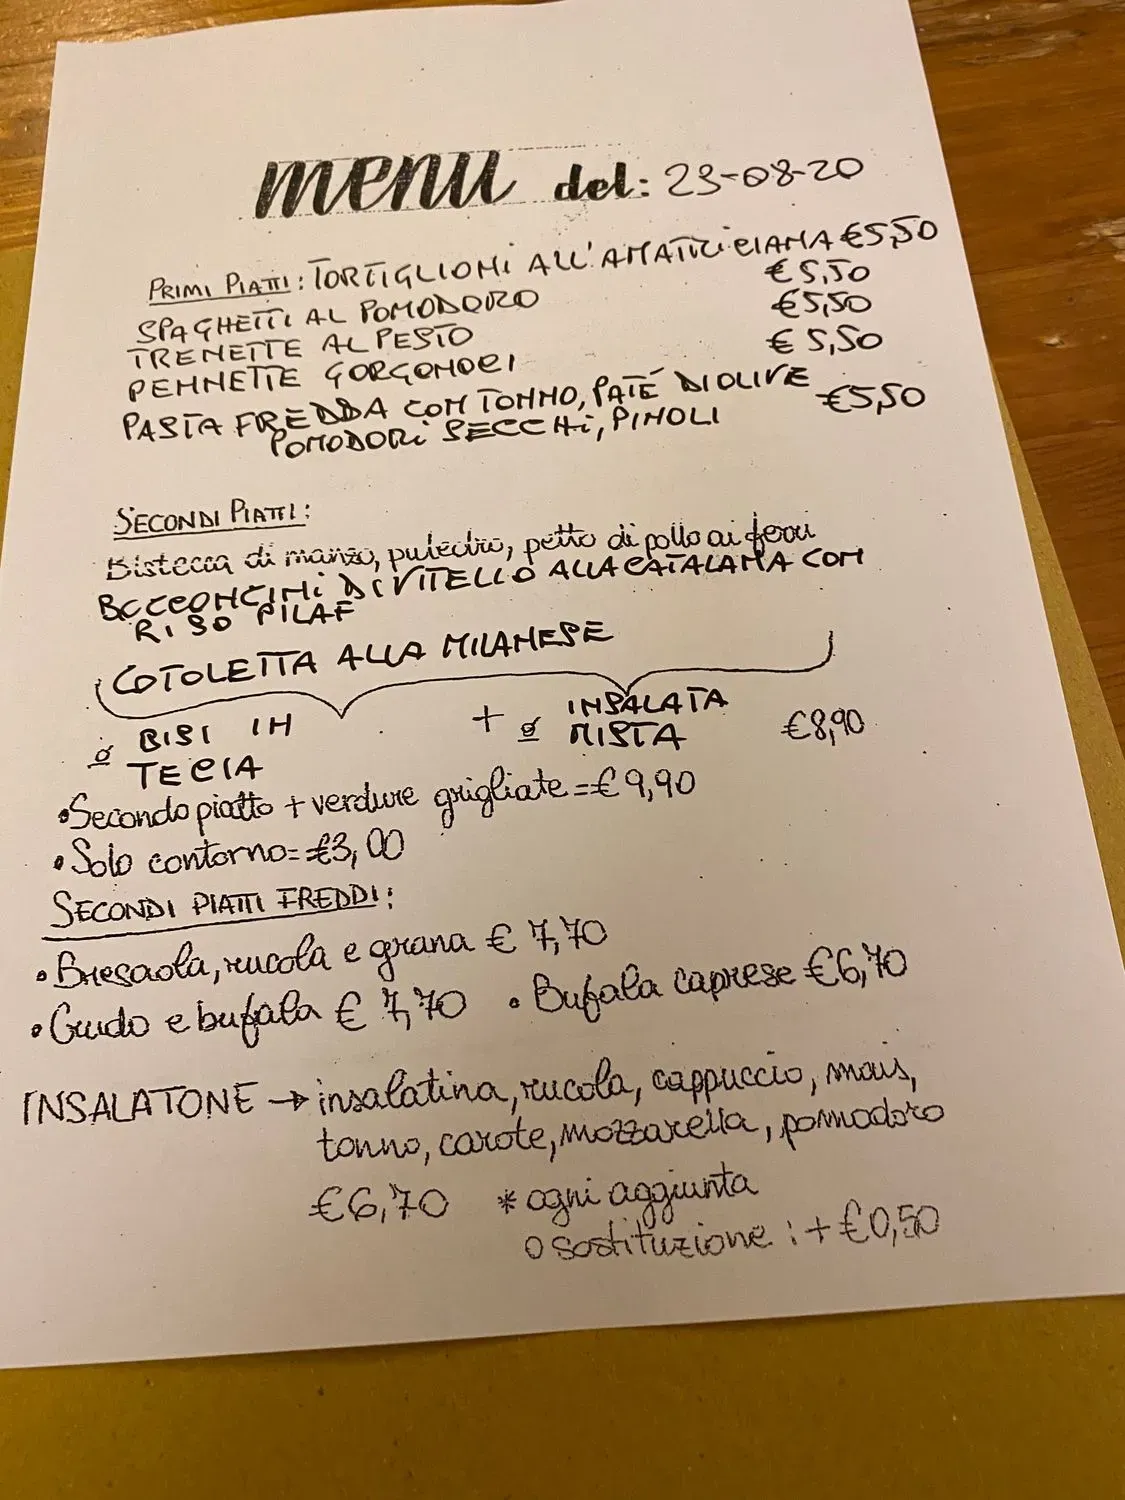 menu del: 23-08-20
PRIMI PIATTI: TORTIGLIONI ALL'AMATRICIANA €5,50
SPAGHETTI AL POMODORO €5,50
TRENETTE AL PESTO €5,50
PENNETTE GORGONOCI €5,50
PASTA FREDDA CON TONNO, PATÉ DI OLIVE
POMODORI SECCHI, PINOLI €5,50
SECONDI PIATTI:
Bistecca di manzo, puledro, petto di pollo ai ferri
BOCCONCINI DI VITELLO ALLA CATALANA CON
RISO PILAF
COTOLETTA ALLA MILANESE
o BISI IN TECIA + o INSALATA MISTA €8,90
•Secondo piatto + verdure grigliate = €9,90
•Solo contorno = €3,00
SECONDI PIATTI FREDDI:
•Bresaola, rucola e grana € 7,70
•Crudo e bufala € 7,70 •Bufala caprese €6,70
INSALATONE → insalatina, rucola, cappuccio, mais,
tonno, carote, mozzarella, pomodoro
€6,70 * ogni aggiunta
o sostituzione : + €0,50